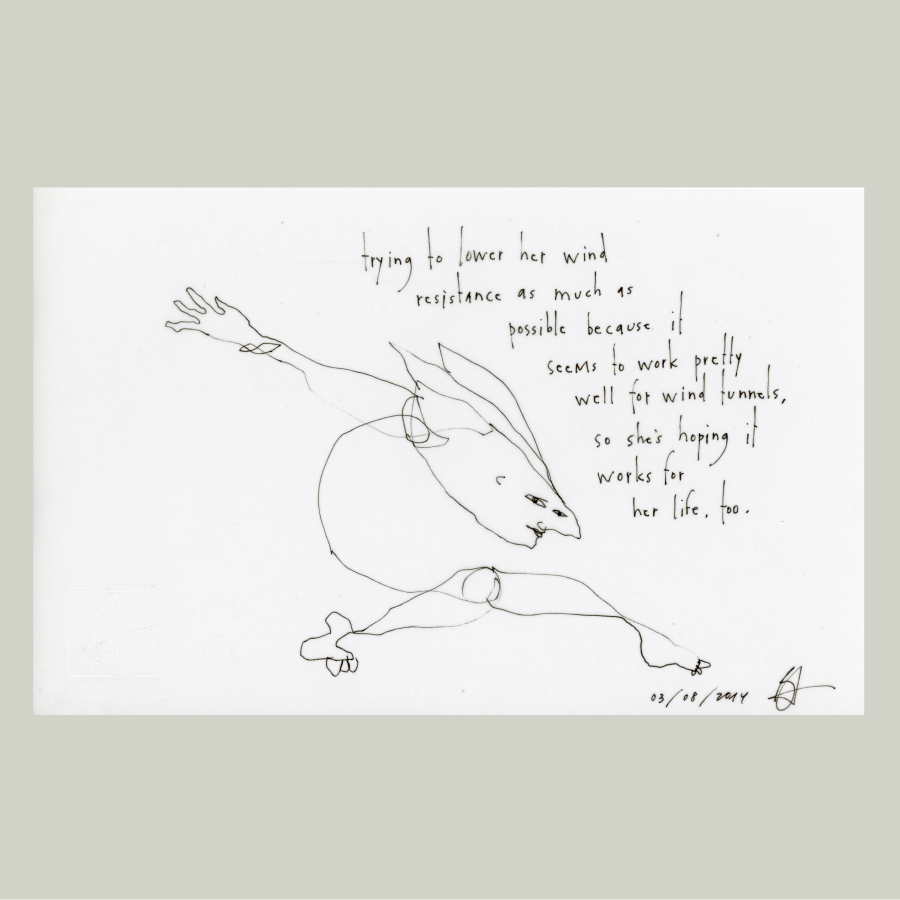 trying to lower her wind
resistance as much as
possible because it
seems to work pretty
well for wind tunnels,
so she's hoping it
works for
her life, too.
03/08/2014